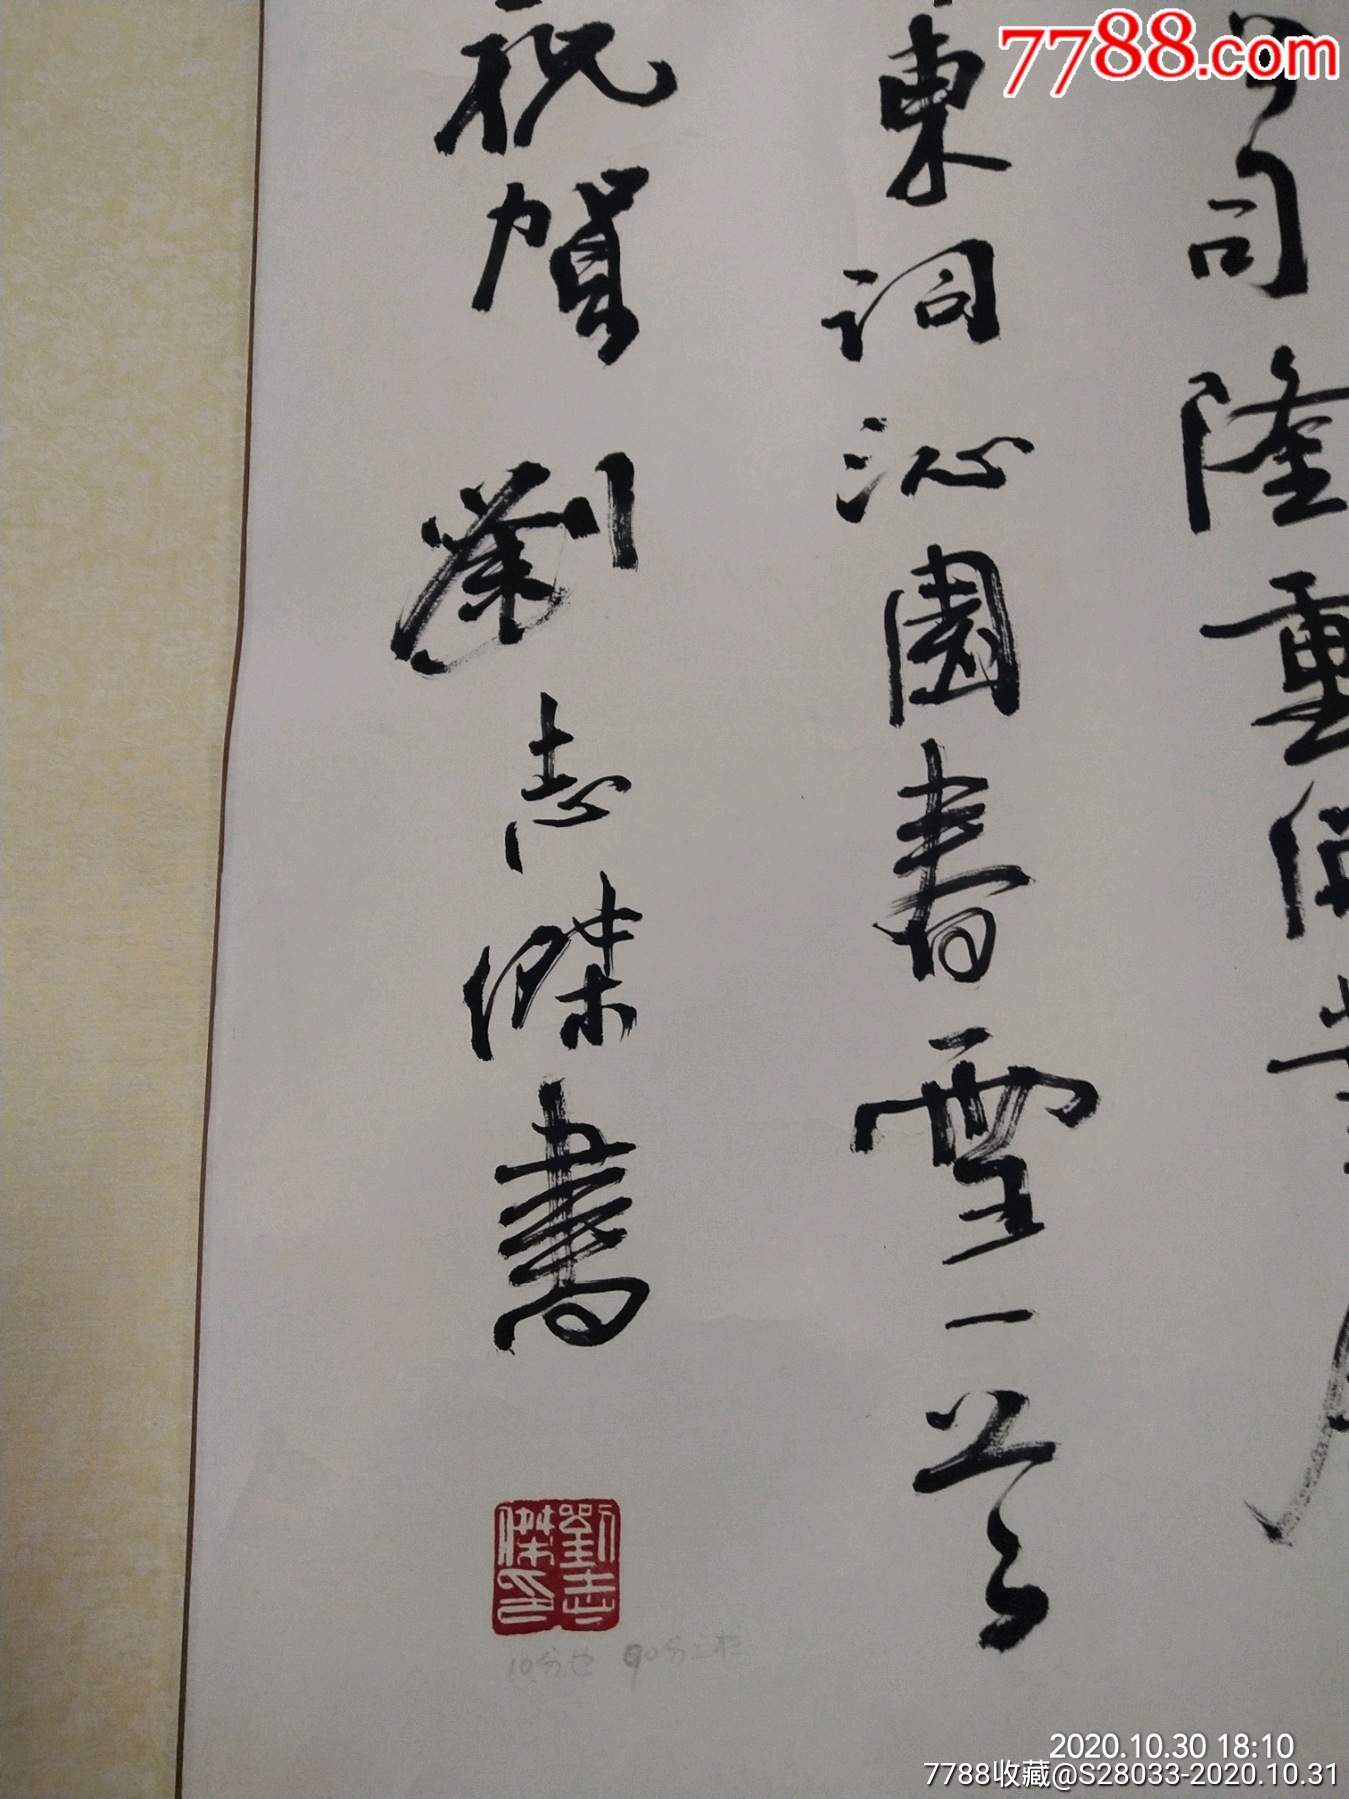 7788.com
司隆重開業
東詞沁園春雪一首
祝賀 劉志傑書
劉志傑印
2020.10.30 18:10
7788收藏@S28033-2020.10.31